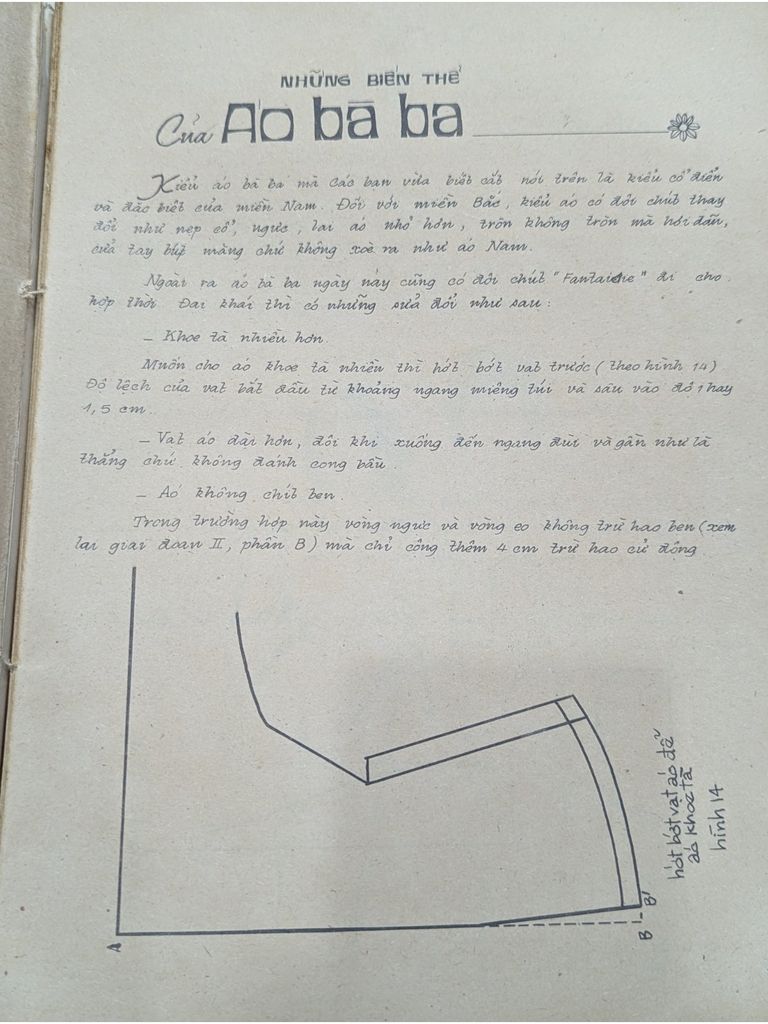 NHỮNG BIẾN THỂ
Của Áo bà ba
Kiểu áo bà ba mà các bạn vừa biết cắt nói trên là kiểu cổ điển
và đặc biệt của miền Nam. Đối với miền Bắc, kiểu áo có đôi chút thay
đổi như nẹp cổ, ngực, lai áo nhỏ hơn, tròn không tròn mà hơi đấu,
cửa tay búp măng chứ không xoè ra như áo Nam.
Ngoài ra áo bà ba ngày này cũng có đôi chút "Fantaisie" đi cho
hợp thời. Đại khái thì có những sửa đổi như sau:
– Khoe tà nhiều hơn.
Muốn cho áo khoe tà nhiều thì hớt bớt vạt trước (theo hình 14)
Độ lệch của vạt bắt đầu từ khoảng ngang miệng túi và sâu vào độ 1 hay
1,5 cm.
– Vạt áo dài hơn, đôi khi xuống đến ngang đùi và gần như là
thẳng chứ không đánh cong bầu.
– Áo không chít ben.
Trong trường hợp này vòng ngực và vòng eo không trừ hao ben (xem
lại giai đoạn II, phần B) mà chỉ cộng thêm 4 cm trừ hao cử động
hớt bớt vạt áo để
áo khoe tà
hình 14
A
B
B'